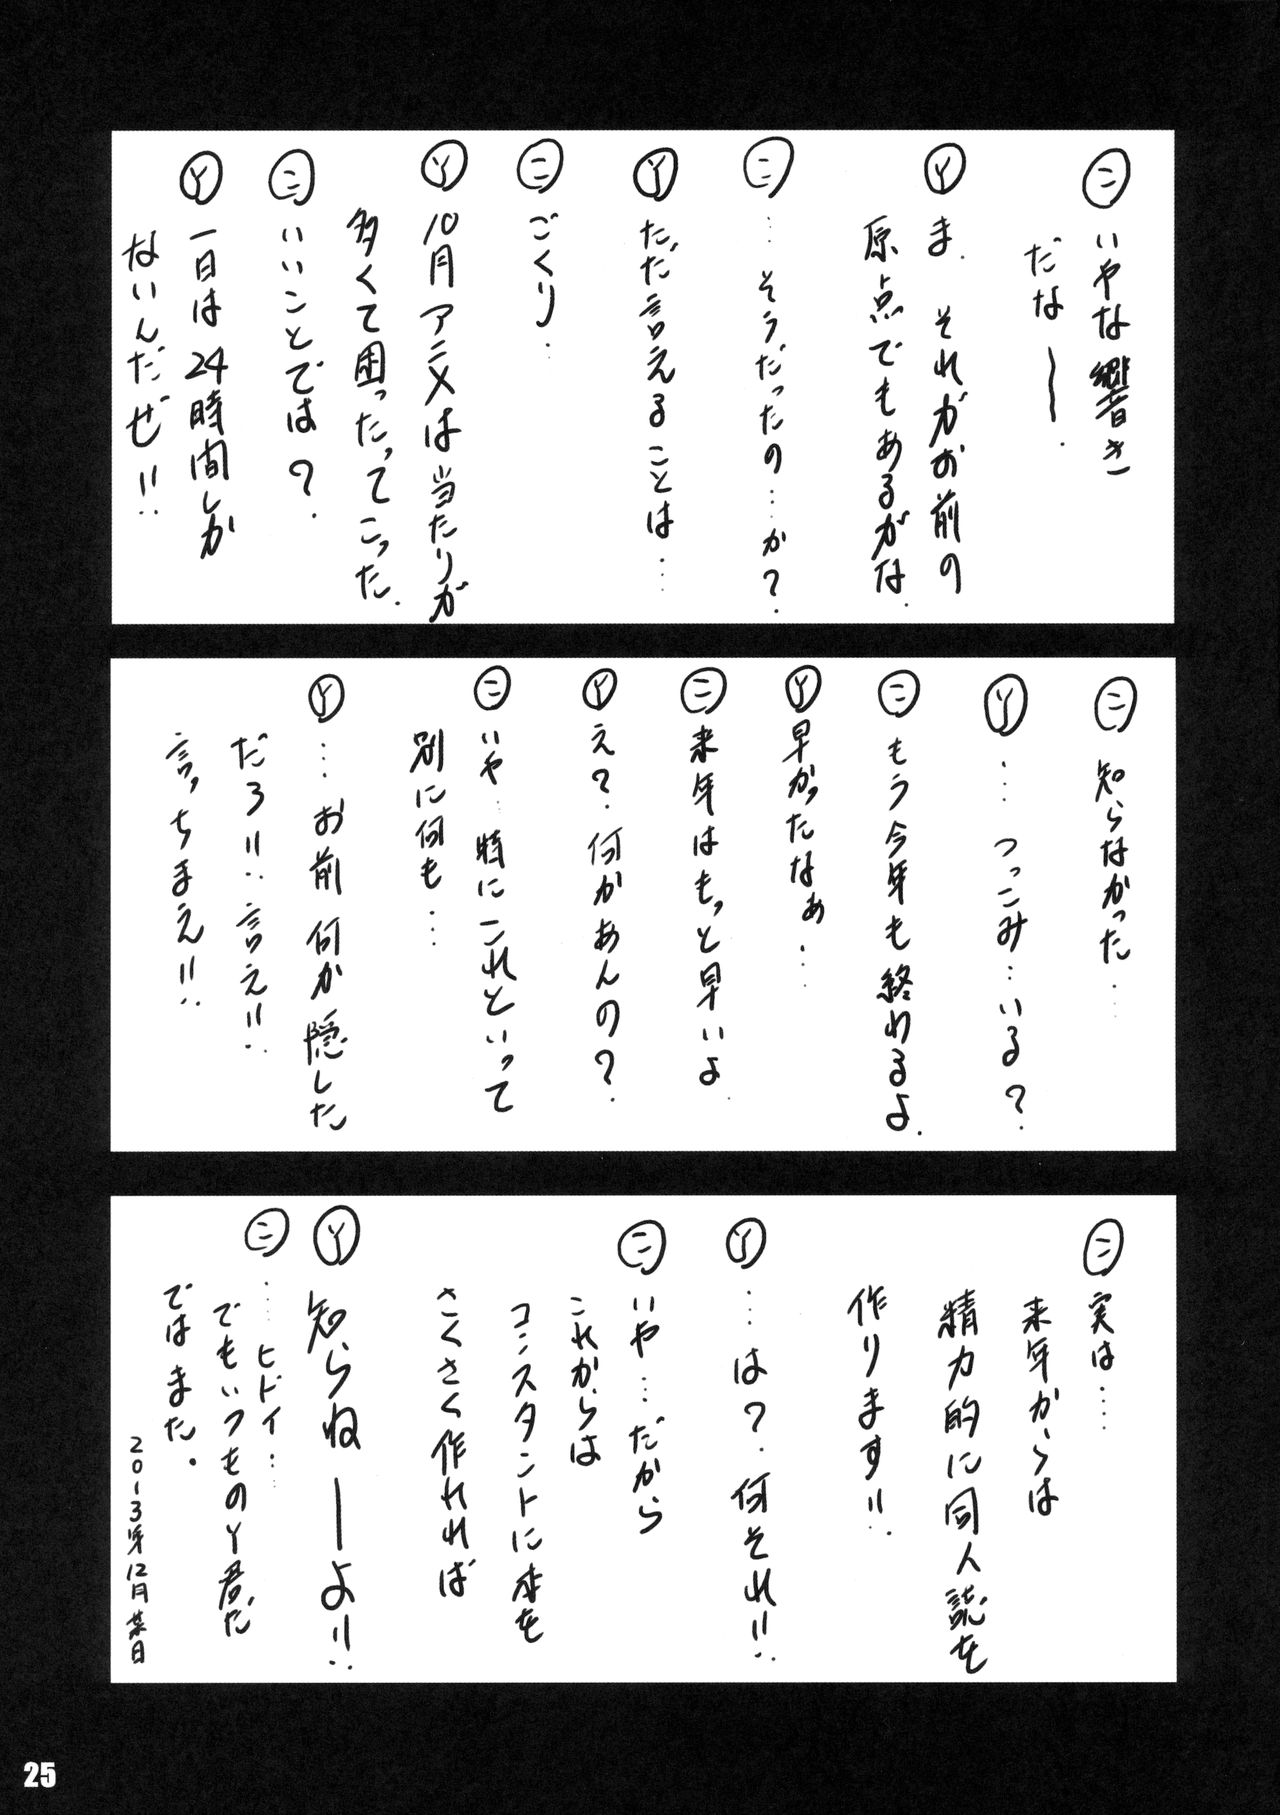 ㊁ いやな響き
だなー.
Ⓨ ま. それがお前の
原点でもあるがな.
㊁ …そうだったの…か?
Ⓨ ただ言えることは…
㊁ ごくり…
Ⓨ 10月アニメは当たりが
多くて困ったってこった.
㊁ いいことでは?
Ⓨ 一日は24時間しか
ないんだぜ!!
㊁ 知らなかった…
Ⓨ …つっこみ…いる?
㊁ もう今年も終わるよ.
Ⓨ 早かったなぁ…
㊁ 来年はもっと早いよ.
Ⓨ え? 何かあんの?
㊁ いや…特にこれといって
別に何も…
Ⓨ …お前 何か隠した
だろ!! 言え!!
言っちまえ!!
㊁ 実は…
来年からは
精力的に同人誌を
作ります!!
Ⓨ …は? 何それ!!
㊁ いや…だから
これからは
コンスタントに本を
さくさく作れれば
Ⓨ 知らねーよ!!
㊁ …ヒドイ…
でもいつものY君だ
ではまた.
2013年12月某日
25